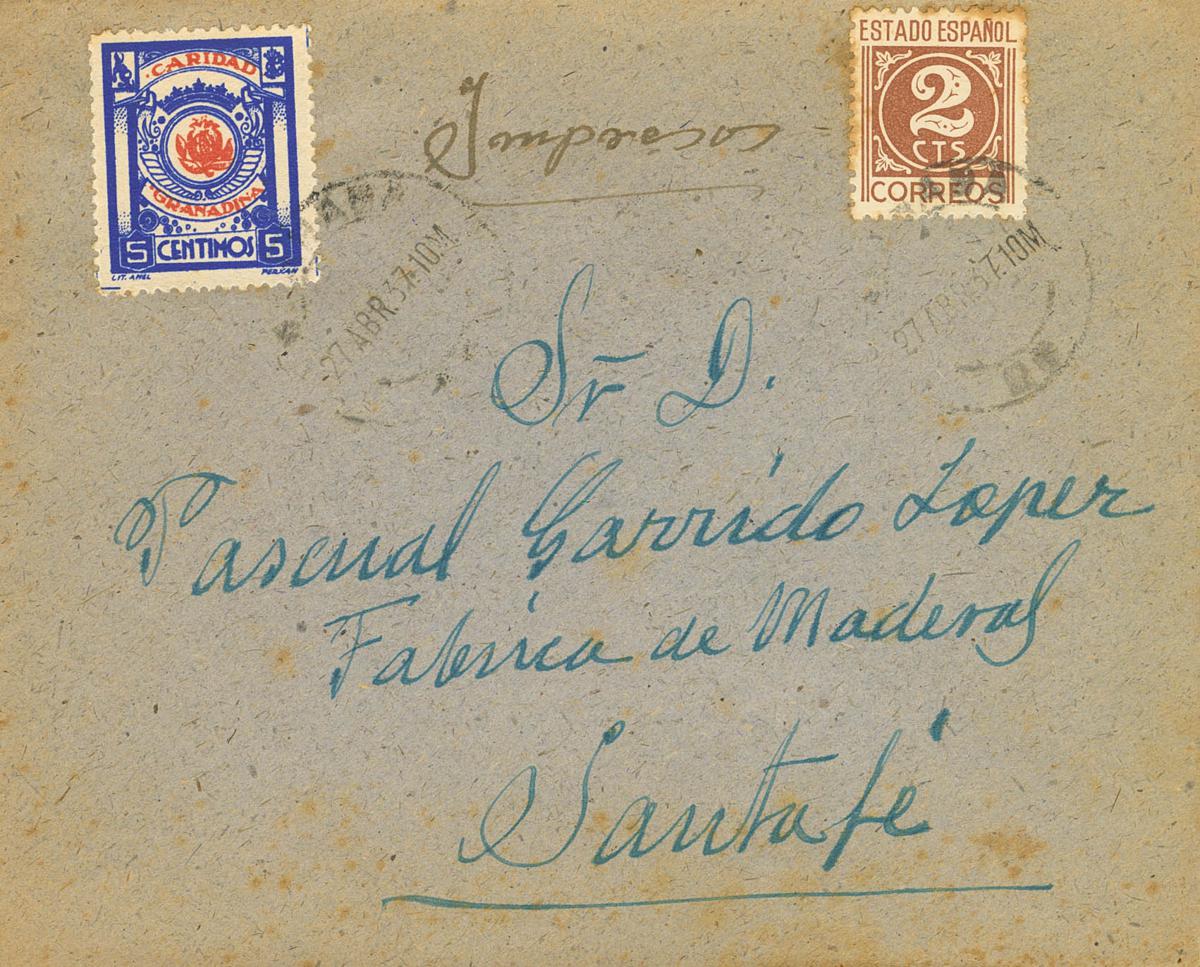 CARIDAD
GRANADINA
5 CENTIMOS 5
LIT. ANEL PERXAN
ESTADO ESPAÑOL
2
CTS
CORREOS
Impresos
27 ABR.37.10M
27 ABR.37.10M
Sr D.
Pascual Garrido Loper
Fabrica de Maderas
Santafé